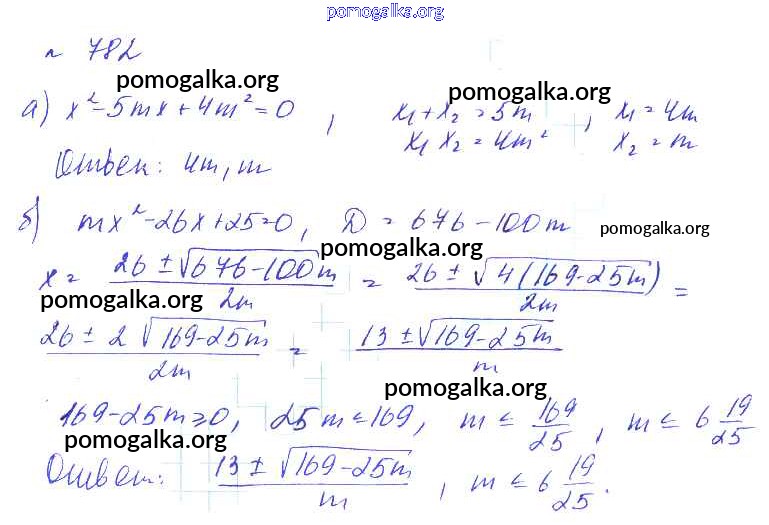 pomogalka.org
№ 782
pomogalka.org
pomogalka.org
а) x² - 5mx + 4m² = 0, x₁ + x₂ = 5m, x₁ = 4m
x₁ x₂ = 4m² x₂ = m
Ответ: 4m, m
б) mx² - 26x + 25 = 0, D = 676 - 100m
pomogalka.org
pomogalka.org
x = (26 ± √(676 - 100m))/2m = (26 ± √(4(169 - 25m)))/2m =
pomogalka.org
(26 ± 2√(169 - 25m))/2m = (13 ± √(169 - 25m))/m
pomogalka.org
169 - 25m ≥ 0, 25m ≤ 169, m ≤ 169/25, m ≤ 6 19/25
pomogalka.org
Ответ: (13 ± √(169 - 25m))/m, m ≤ 6 19/25.